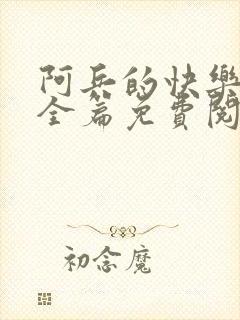 阿兵的快樂
全篇免費閱
初念魔